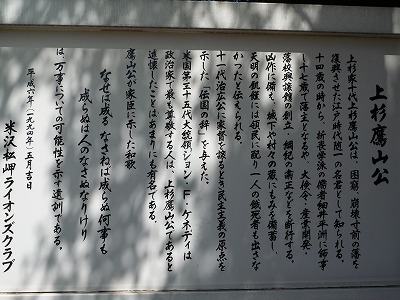 上杉鷹山公
上杉家十代上杉鷹山公は、困窮、崩壊寸前の藩を
復興させた江戸時代随一の名君として知られる。
十四歳の時から、折衷学派の儒者細井平洲に師事
し十七歳で藩主となるや、大倹令・産業開発・
藩校興譲館の創立・綱紀の粛正などを断行する。
凶作に備え、城下や村々の蔵にもみを備蓄し、
天明の飢饉には領民に配り一人の餓死者も出さな
かったと伝えられる。
十一代治広公に家督を譲るとき民主主義の原点を
示した「伝国の辞」を与えた。
米国第三十五代大統領ジョン・F・ケネディは
政治家で最も尊敬する人は、上杉鷹山公であると
述懐したことはあまりにも有名である。
鷹山公が家臣に示した和歌
なせば成る なさねば成らぬ 何事も
成らぬは人の なさぬなりけり
は、万事についての可能性を示す遺訓である。
平成六年(一九九四年)五月吉日
米沢松岬ライオンズクラブ